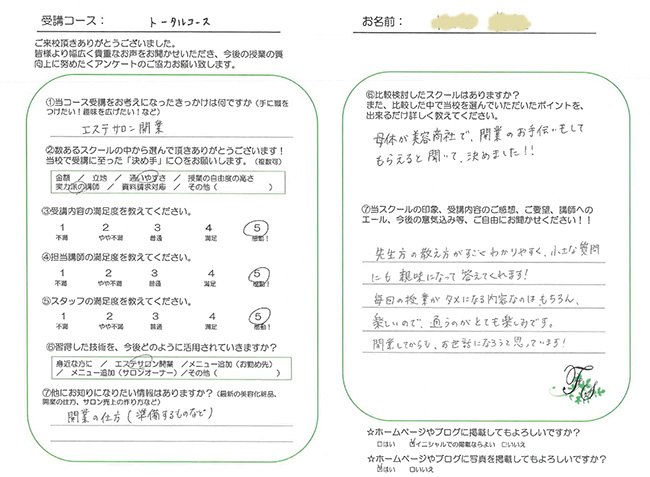 受講コース： トータルコース
ご来校頂きありがとうございました。
皆様より幅広く貴重なお声をお聞かせいただき、今後の授業の質
向上に努めたくアンケートのご協力お願い致します。
①当コース受講をお考えになったきっかけは何ですか（手に職を
つけたい！趣味を広げたい！など）
エステサロン開業
②数あるスクールの中から選んで頂きありがとうございます！
当校で受講に至った「決め手」に〇をお願いします。（複数可）
金額 / 立地 / 通いやすさ / 授業の自由度の高さ
実力派の講師 / 資料請求対応 / その他（ ）
③受講内容の満足度を教えてください。
1 2 3 4 5
不満 やや不満 普通 満足 感動！
④担当講師の満足度を教えてください。
1 2 3 4 5
不満 やや不満 普通 満足 感動！
⑤スタッフの満足度を教えてください。
1 2 3 4 5
不満 やや不満 普通 満足 感動！
⑥習得した技術を、今後どのように活用されていきますか？
身近な方に / エステサロン開業 /メニュー追加（お勤め先）
/ メニュー追加（サロンオーナー）/その他（ ）
⑦他にお知りになりたい情報はありますか？（最新の美容化粧品、
開業の仕方、サロン売上の作り方など）
開業の仕方（準備するものなど）
お名前：
⑥比較検討したスクールはありますか？
また、比較した中で当校を選んでいただいたポイントを、
出来るだけ詳しく教えてください。
母体が美容商社で、開業のお手伝いもして
もらえると聞いて、決めました!!
⑦当スクールの印象、受講内容のご感想、ご要望、講師への
エール、今後の意気込み等、ご自由にお聞かせください！！
先生方の教え方がすごくわかりやすく、小さな質問
にも親味になって答えてくれます！
毎回の授業がタメになる内容なのはもちろん、
楽しいので、通うのがとても楽しみです。
開業してからも、お世話になろうと思っています！
☆ホームページやブログに掲載してもよろしいですか？
□はい ☑イニシャルでの掲載ならよい □いいえ
☆ホームページやブログに写真を掲載してもよろしいですか？
☑はい □いいえ